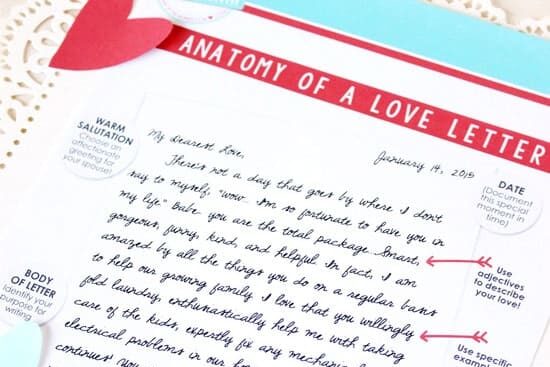 ANATOMY OF A LOVE LETTER
WARM
SALUTATION
Choose an
affectionate
greeting for
your spouse!
My Dearest Love,
January 14, 2015
There's not a day that goes by where I don't
say to myself, "wow. I'm so fortunate to have you in
my life." Babe you are the total package. Smart,
gorgeous, funny, kind, and helpful. In fact, I am
amazed by all the things you do on a regular basis
to help our growing family. I love that you willingly
fold laundry, enthusiastically help me worth taking
care of the kids, expertly fix any mechanical
electrical problems in our
continues! you
DATE
(Document
this special
moment in
time)
Use
adjectives
to describe
your love!
Use specific
BODY
OF LETTER
Identify your
purpose for
writing